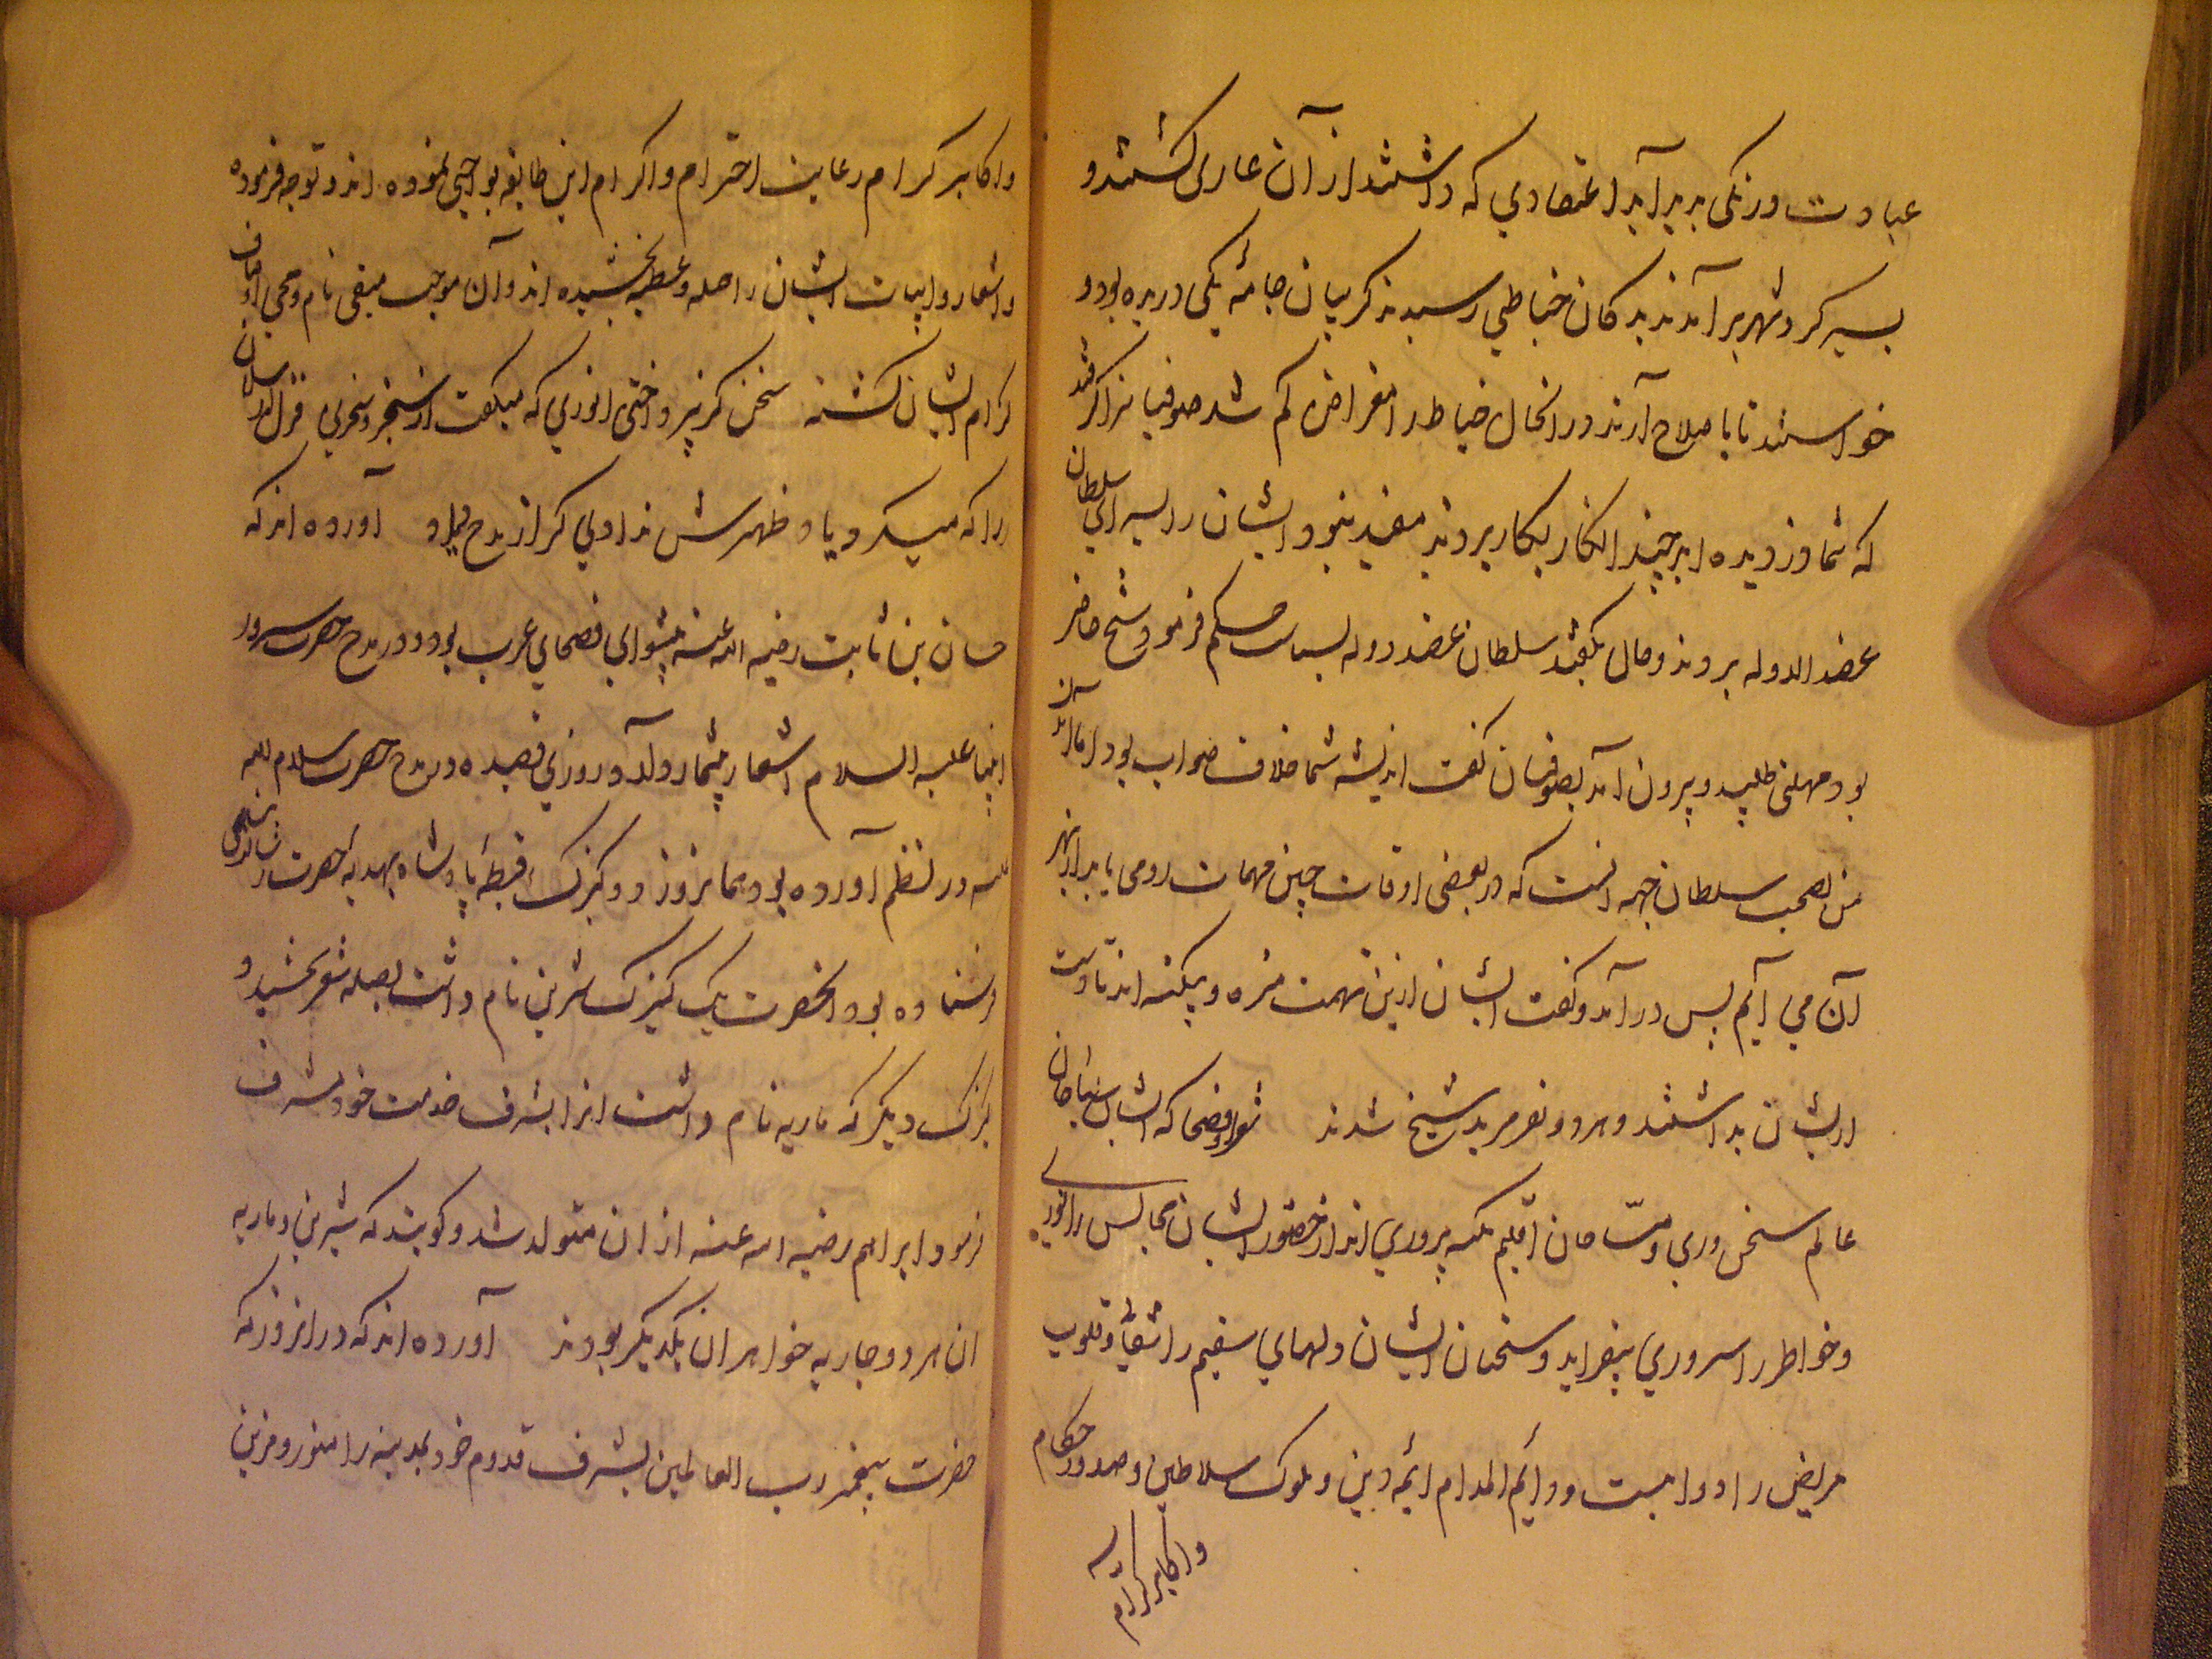 عبادت و زنگی برید آید اعتقادی که داشتند از آن عاری گشتند و
بسیر گرد شهر برآمدند بدکان خیاطی رسیدند گریبان جامهٔ یکی دریده بود و
خواستند تا باصلاح آرند در انحال خیاط را مقراض کم شد صوفیانرا گرفتند
که شما دزدیده اید هر چند انکار بکار بردند مفید نبود ایشان را سلطان
عضد الدوله بردند و حال بگفتند سلطان عضد دوله بسیاست حکم فرمود شیخ حاضر
بود مهلتی طلبید و بیرون آمد بصوفیان گفت اندیشه شما خلاف صواب بود
من بصحبت سلطان جهه انست که در بعضی اوقات چنین مهمات رومی یابد از بهر
آن می آیم پس در آمد و گفت ایشان ازین تهمت منزه و بیگنه اند تا دست
از ایشان بداشتند و هر دو نفر مرید شیخ شدند شعرا و فصحا که ایشان سیاحان
عالم سخن وری و مساحان اقلیم نکته پروری اند از حضور ایشان مجالس را نوری
و خواطر را سروری بیفزاید و سخنان ایشان دلهای سقیم را شفا و قلوب
مریض را دوا هست و دائم المدام ائمه دین و ملوک سلاطین و صدور حکام
و اکابر کرام
و اکابر کرام رعایت احترام و اکرام این طایفه بواجبی نموده اند و توجه فرموده
و اشعار و ابیات ایشان را صله و عطیه بخشیده اند و آن موجب مبقی نام و محیی اوصاف
کرام ایشان گشته سخن گر نپرداختی انوری که میگفت از سنجر و سنجری قزل ارسلان
را که میکرد یاد ظهیرش ندادی گر از مدح داد آورده اند که
حسان بن ثابت رضیه الله عنه پیشوای فصحای عرب بود و در مدح حضرت سرور
انبیا علیه السلام اشعار بیشمار دارد و روزی قصیده در مدح حضرت سلام الله
علیه در نظم آورده بود همانروز دو کنیزک قبطه پادشاه بهدیه حضرت
فرستاده بود انحضرت یک کنیزک شرین نام داشت بصله شعر بخشید و
کنیزک دیگر که ماریه نام داشت انرا بشرف خدمت خود مشرف
فرمود ابراهیم رضیه الله عنه از ان متولد شد و گویند که شیرین و ماریه
ان هر دو جاریه خواهران یکدیگر بودند آورده اند که در انروز که
حضرت پیغمبر رب العالمین بشرف قدوم خود مدینه را منور و مزین